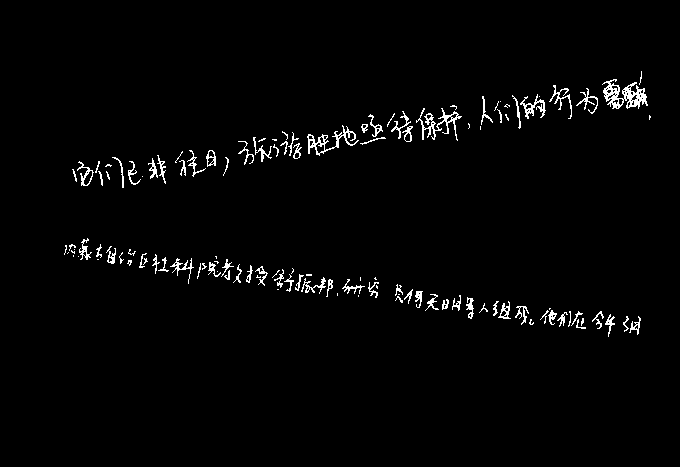 它们已非往日,旅游胜地亟待保护,人们的行为
内蒙古自治区社科院教授舒振邦、研究员傅无日团等人组成。他们在今年3月